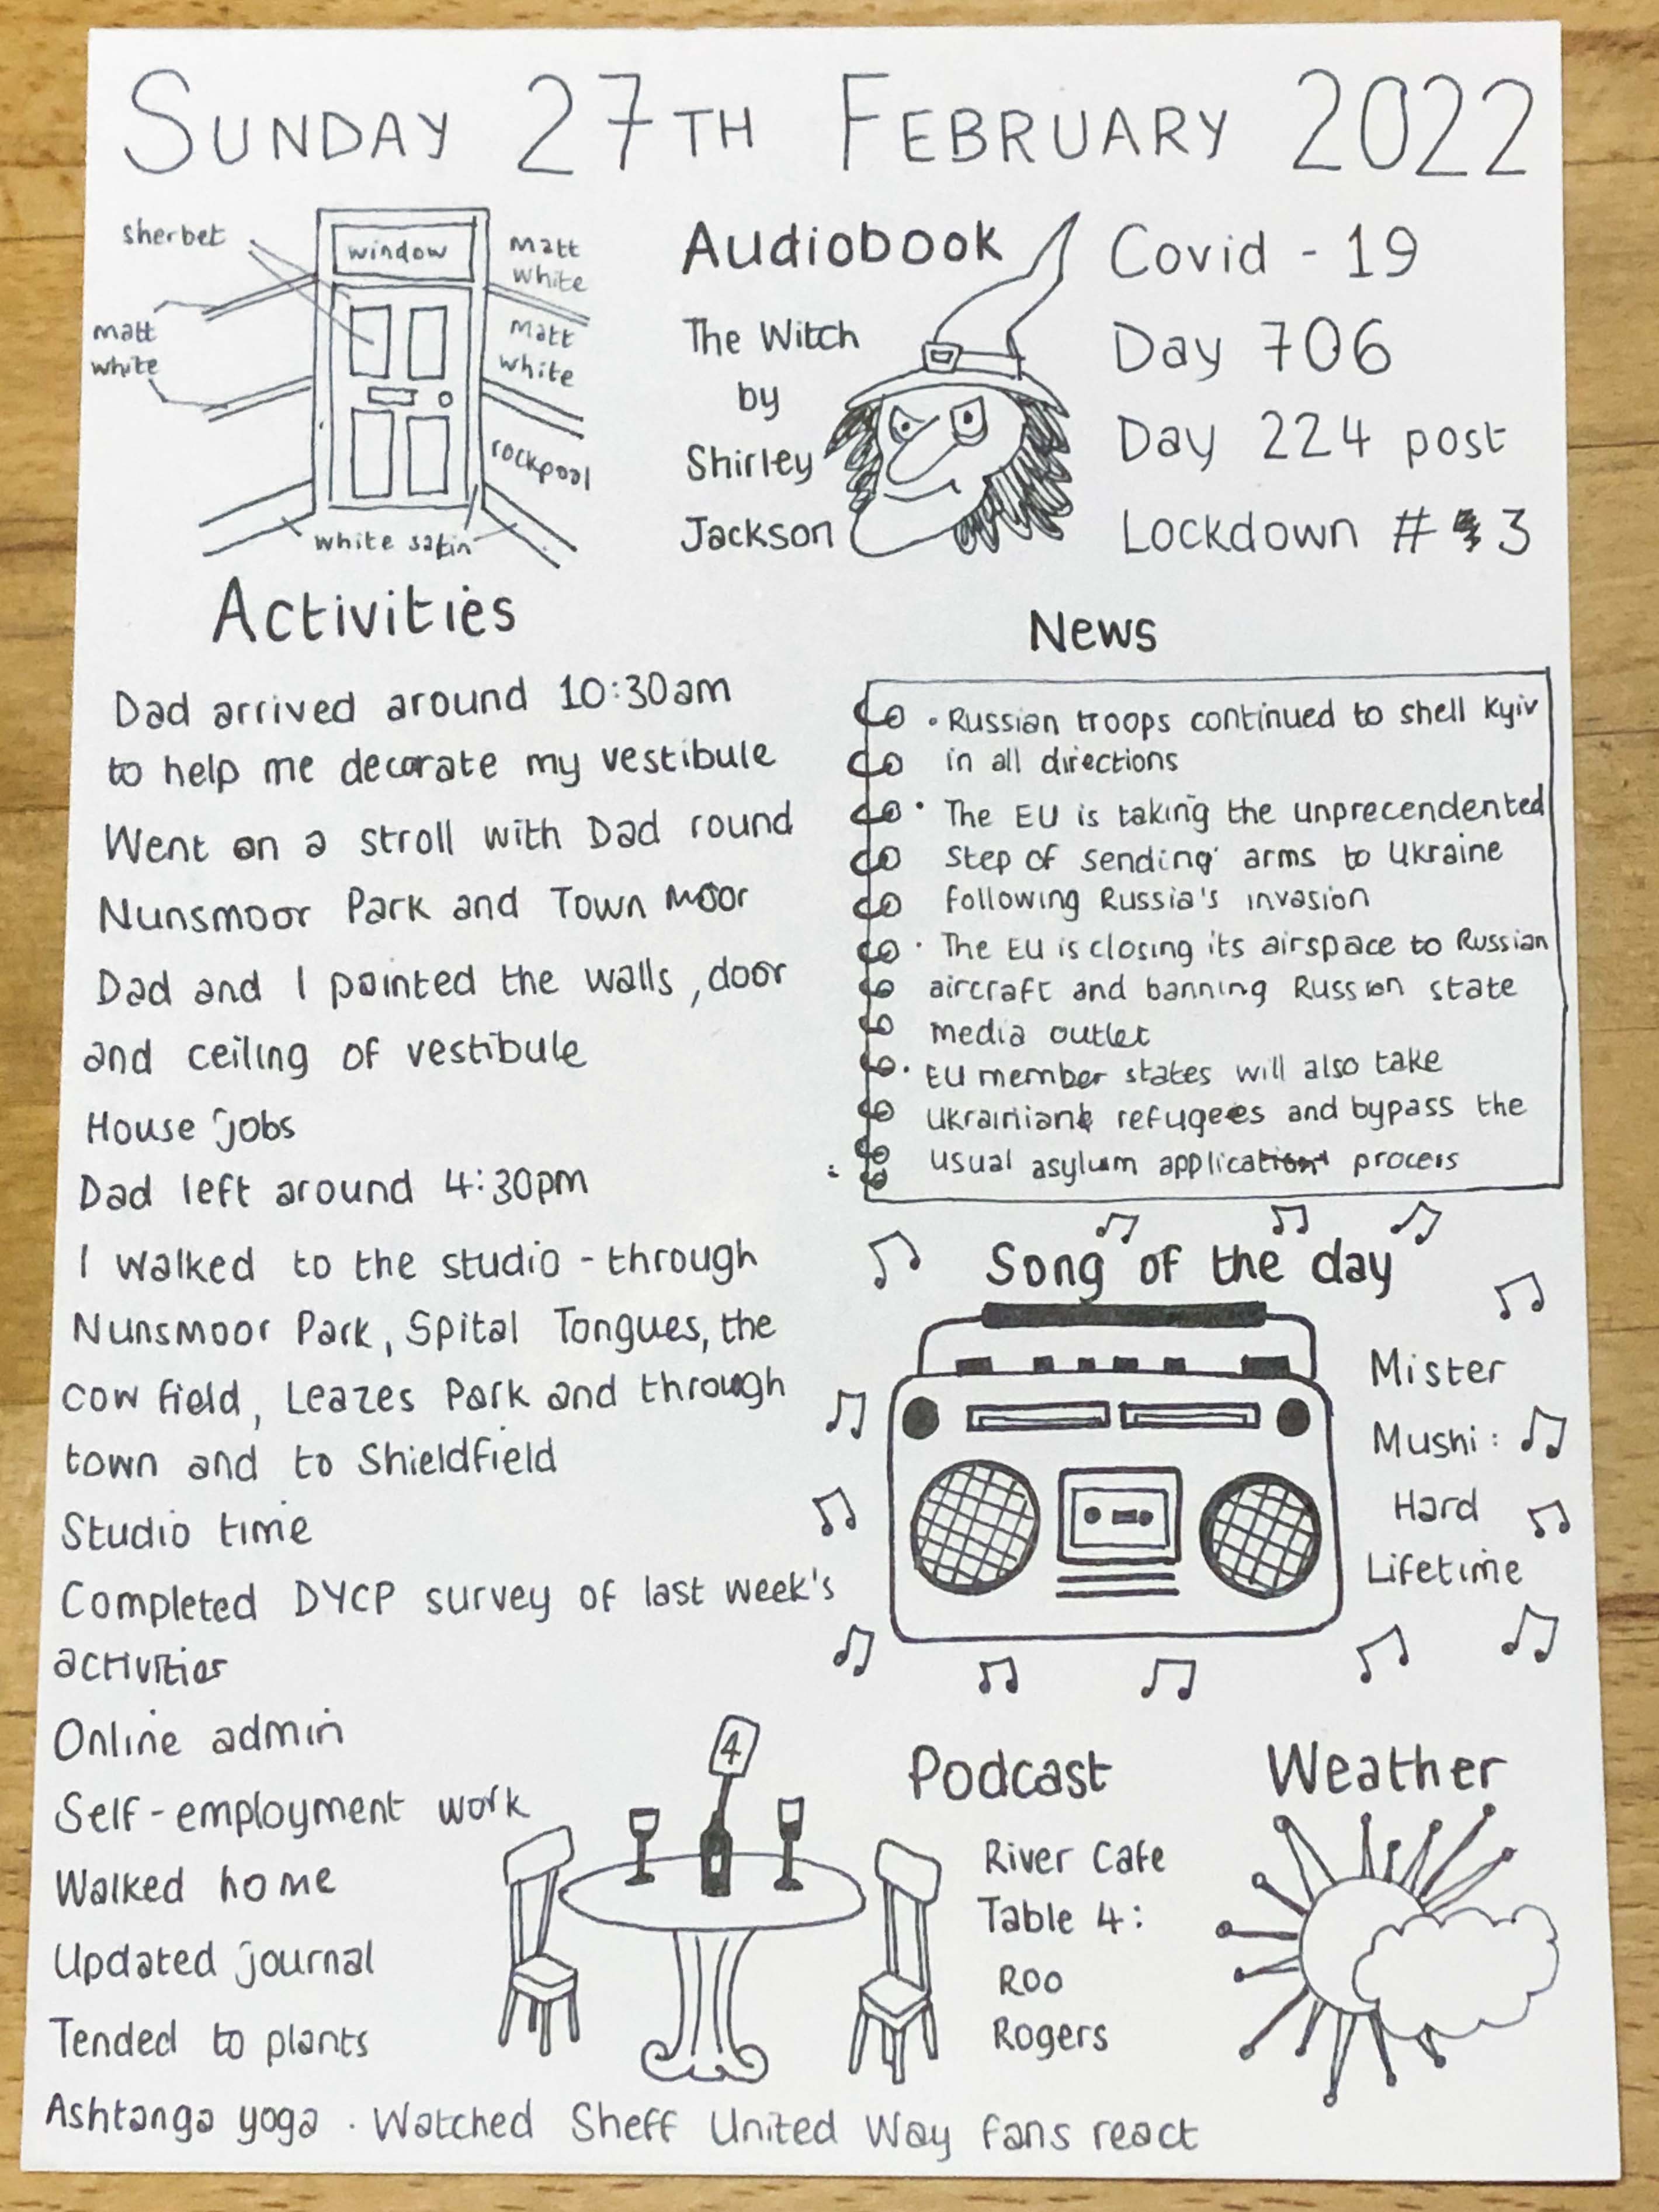 SUNDAY 27TH FEBRUARY 2022
sherbet
window
matt
white
matt
white
matt
white
rockpool
white satin
Audiobook
The Witch
by
Shirley
Jackson
Covid - 19
Day 706
Day 224 post
Lockdown # 3
Activities
Dad arrived around 10:30am
to help me decorate my vestibule
Went on a stroll with Dad round
Nunsmoor Park and Town Moor
Dad and I painted the walls, door
and ceiling of vestibule
House jobs
Dad left around 4:30pm
I walked to the studio - through
Nunsmoor Park, Spital Tongues, the
cow field, Leazes Park and through
town and to Shieldfield
Studio time
Completed DYCP survey of last week's
activities
Online admin
Self-employment work
Walked home
Updated journal
Tended to plants
Ashtanga yoga . Watched Sheff United Way fans react
News
• Russian troops continued to shell Kyiv
in all directions
• The EU is taking the unprecendented
step of sending arms to Ukraine
following Russia's invasion
• The EU is closing its airspace to Russian
aircraft and banning Russian state
media outlet
• EU member states will also take
Ukrainian refugees and bypass the
usual asylum application process
Song of the day
Mister
Mushi:
Hard
Lifetime
4
Podcast
River Cafe
Table 4:
Roo
Rogers
Weather